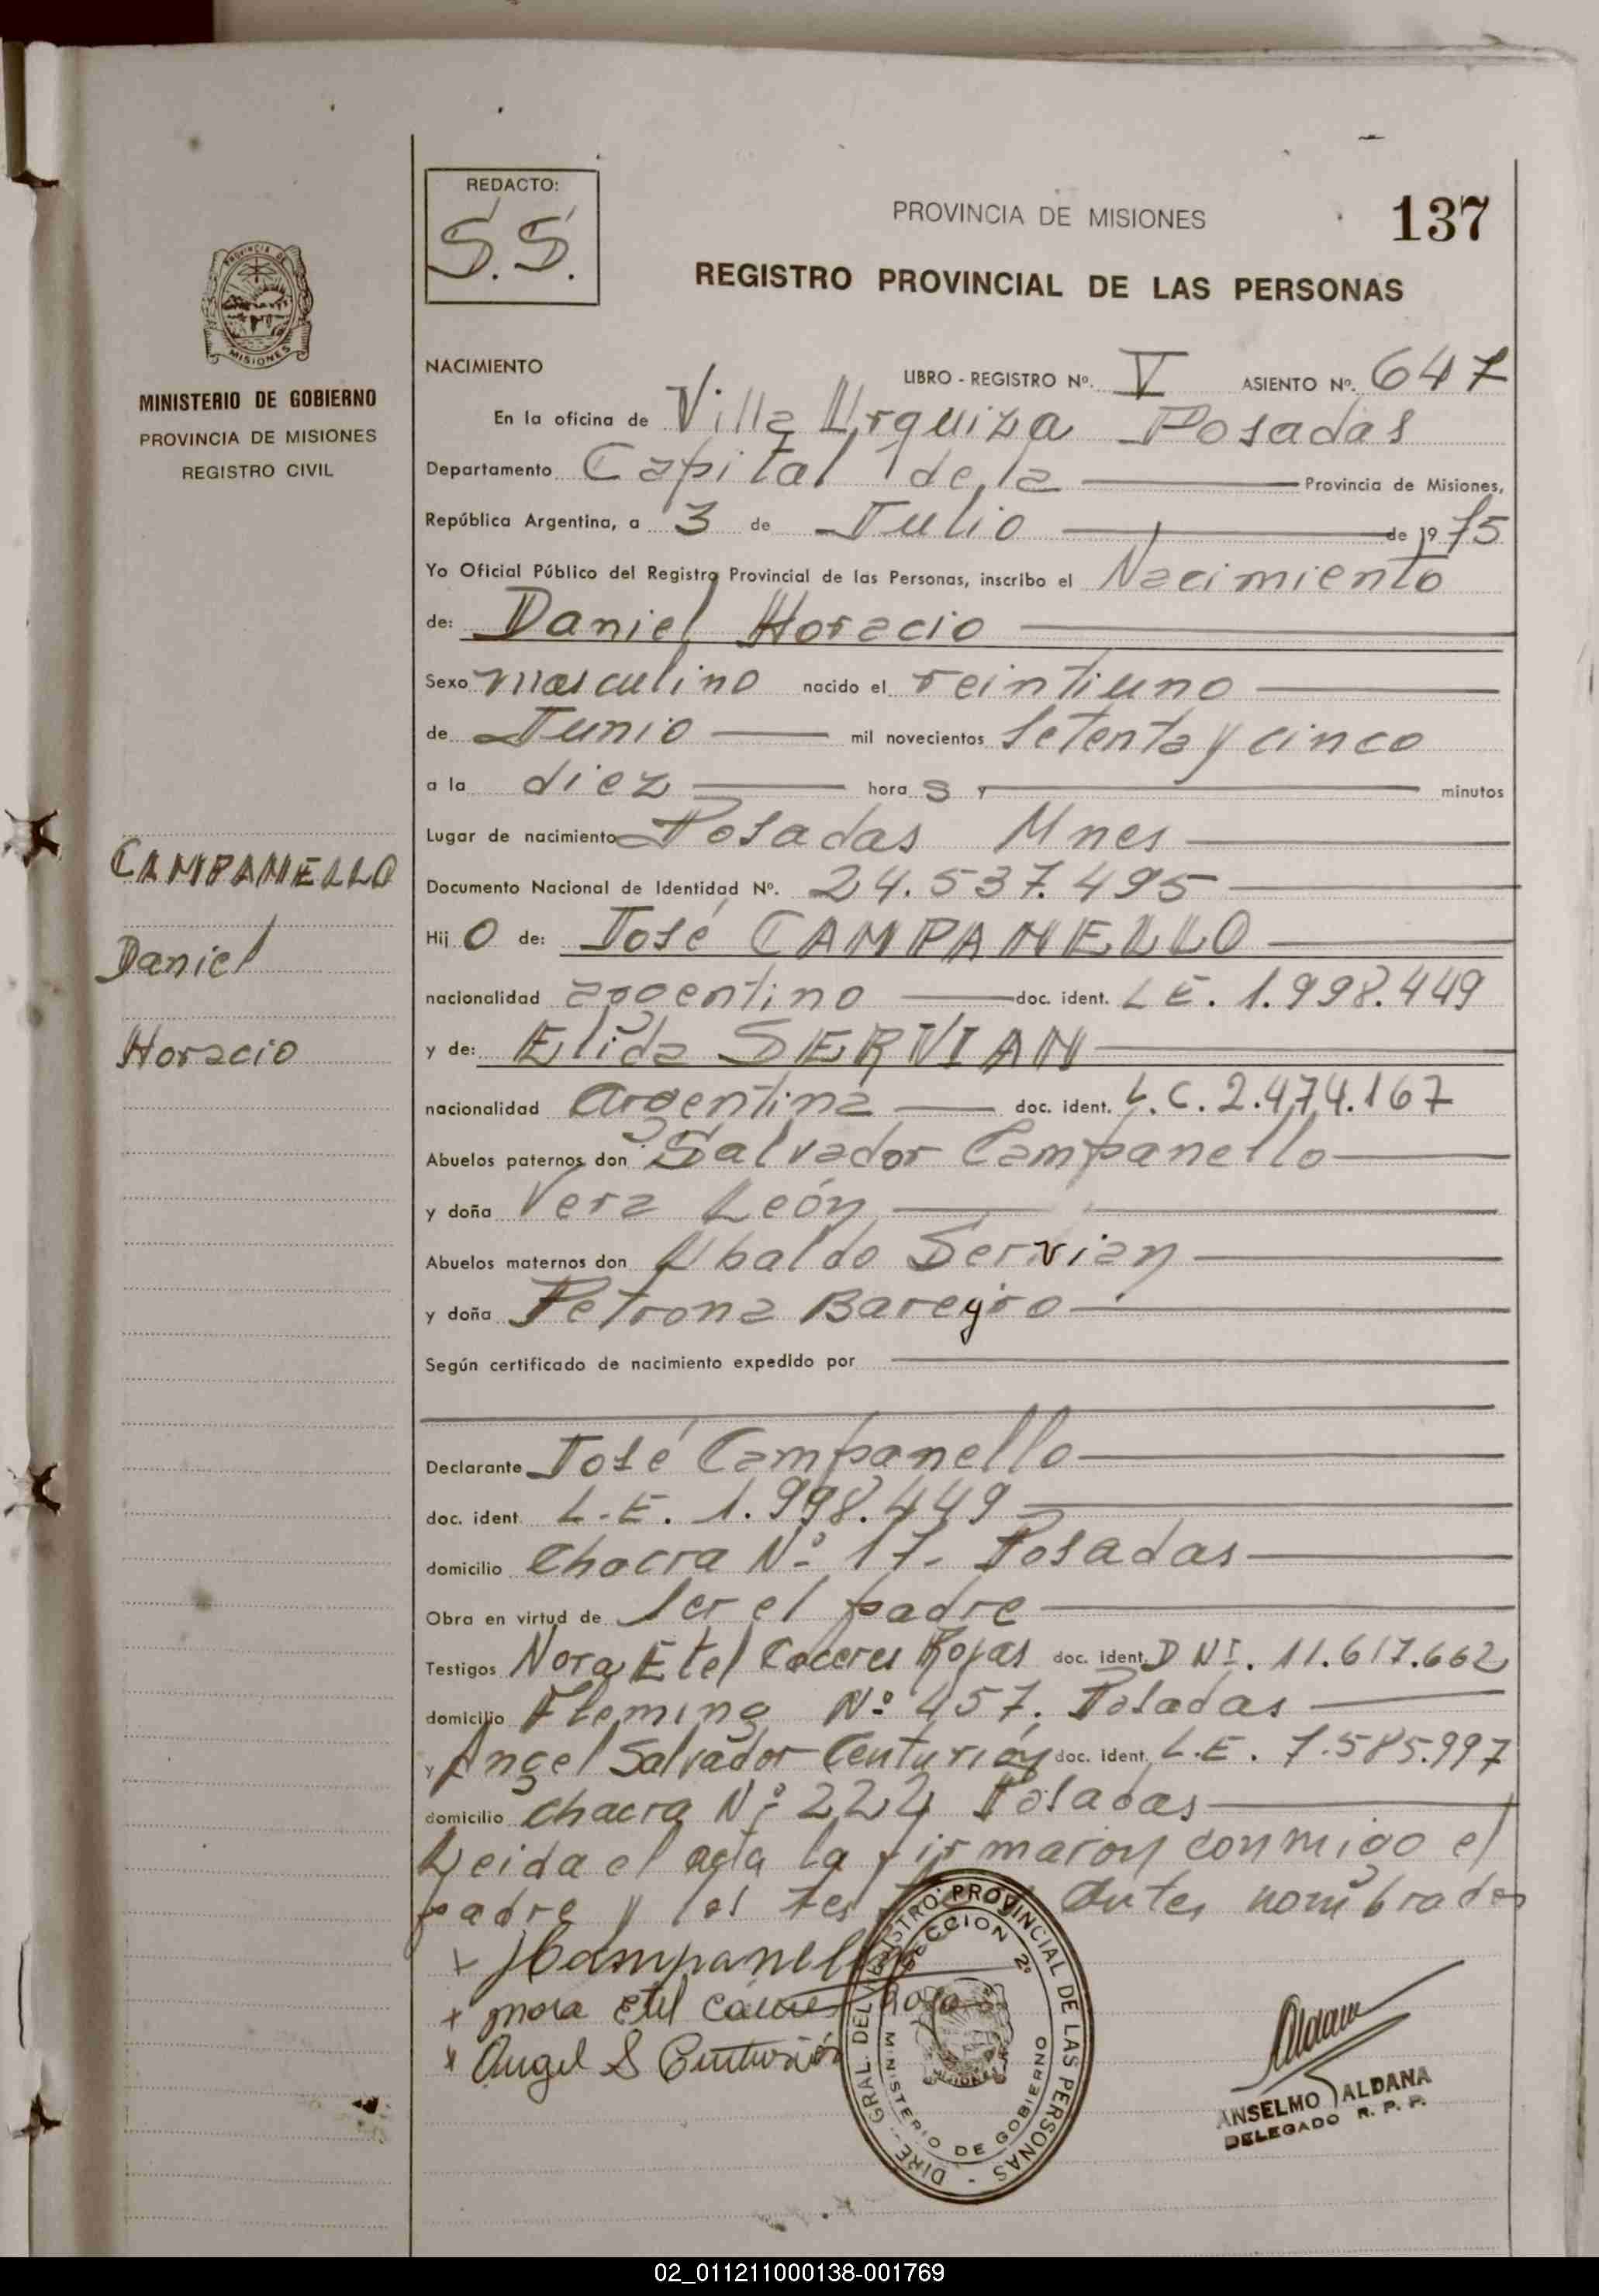 REDACTO:
S.S.
PROVINCIA DE MISIONES
137
REGISTRO PROVINCIAL DE LAS PERSONAS
PROVINCIA DE
MISIONES
MINISTERIO DE GOBIERNO
PROVINCIA DE MISIONES
REGISTRO CIVIL
NACIMIENTO
LIBRO - REGISTRO Nº. V ASIENTO Nº. 647
En la oficina de Villa Urquiza Posadas
Departamento Capital de la Provincia de Misiones,
República Argentina, a 3 de Julio de 1975
Yo Oficial Público del Registro Provincial de las Personas, inscribo el Nacimiento
de: Daniel Horacio
Sexo masculino nacido el veintiuno
de Junio mil novecientos setenta y cinco
a la diez hora s y minutos
Lugar de nacimiento Posadas Mnes
CAMPANELLO
Documento Nacional de Identidad Nº. 24.537.495
Daniel
Hij o de: José CAMPANELLO
nacionalidad argentino doc. ident. L E. 1.998.449
Horacio
y de: Elida SERVIAN
nacionalidad Argentina doc. ident. L. C. 2.474.167
Abuelos paternos don Salvador Campanello
y doña Vera León
Abuelos maternos don Ubaldo Servian
y doña Petrona Bareyro
Según certificado de nacimiento expedido por
Declarante José Campanello
doc. ident L.E. 1.998.449
domicilio Chacra Nº 17- Posadas
Obra en virtud de ser el padre
Testigos Nora Etel Caceres Rojas doc. ident. D NI. 11.617.662
domicilio Fleming Nº 457. Posadas
y Angel Salvador Centurión doc. ident. L.E. 7.585.997
domicilio Chacra Nº 222 Posadas
Leida el acta la firmaron conmigo el
padre y los tes antes nombrados
x JCampanello
x Nora Etel Caceres Rojas
x Angel S Centurión
DIRE. GRAL. DEL REGISTRO PROVINCIAL DE LAS PERSONAS -
SECCION 2º
MINISTERIO DE GOBIERNO
Aldana
ANSELMO ALDANA
DELEGADO R. P. P.
02_011211000138-001769